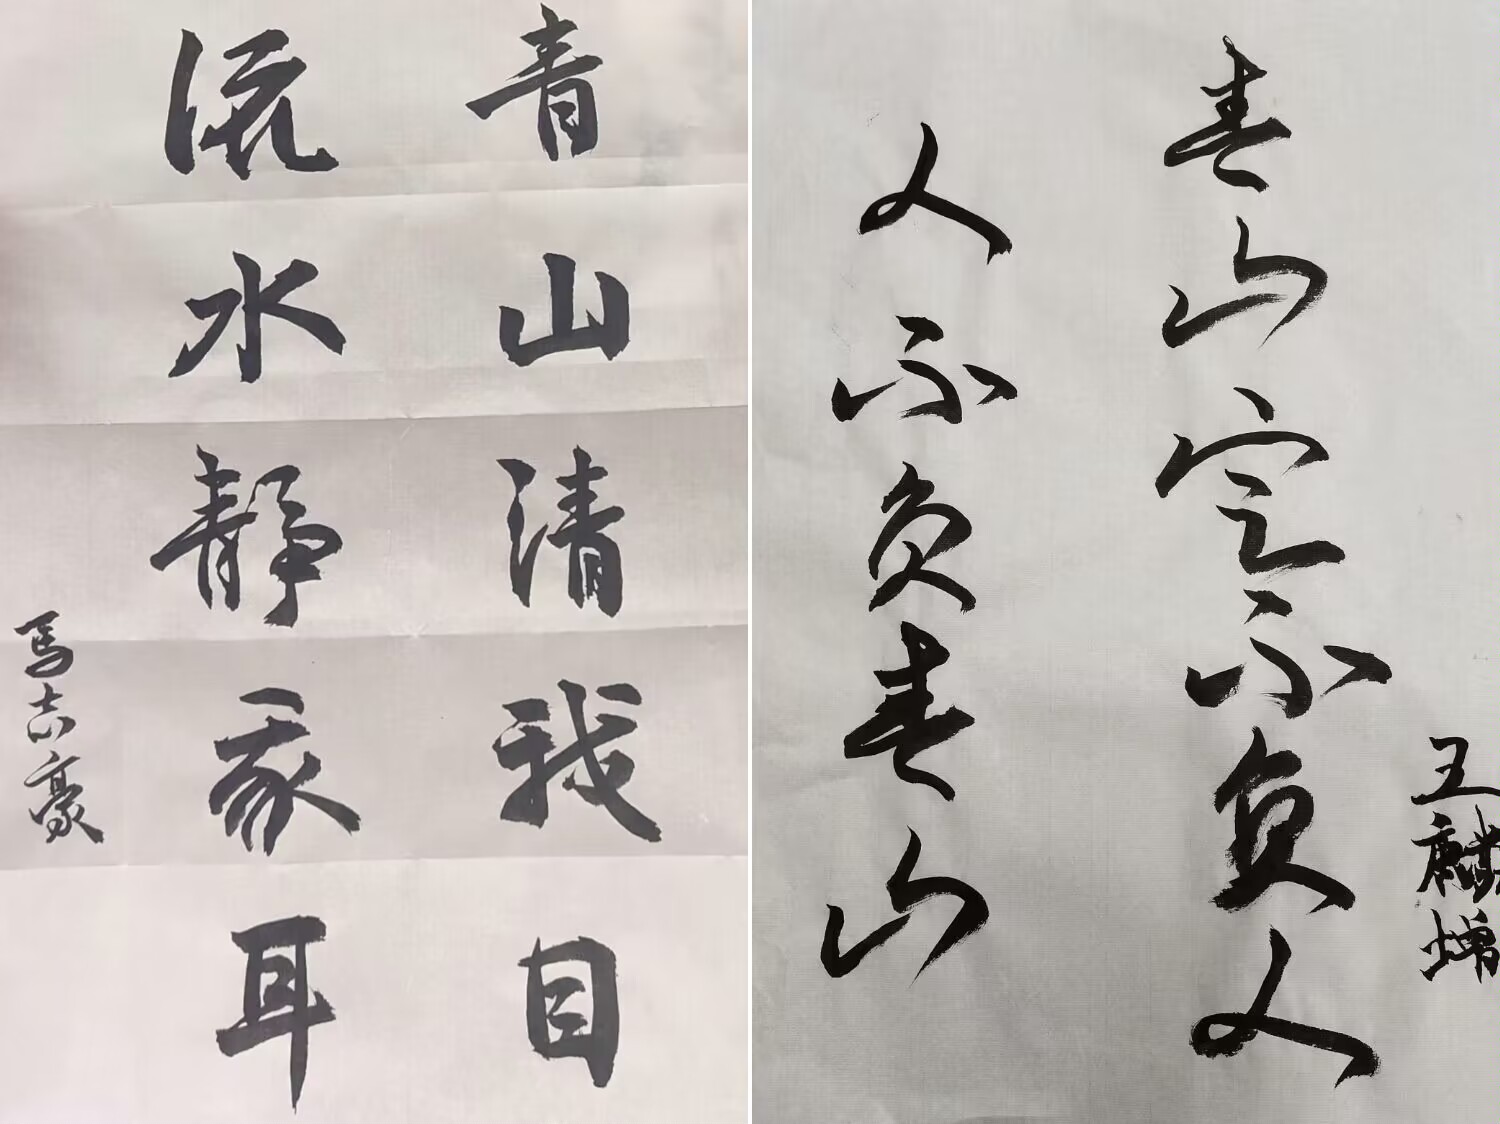 青山清我目
流水靜我耳
馬志豪
王麟增
春山定不負人
人不負春山